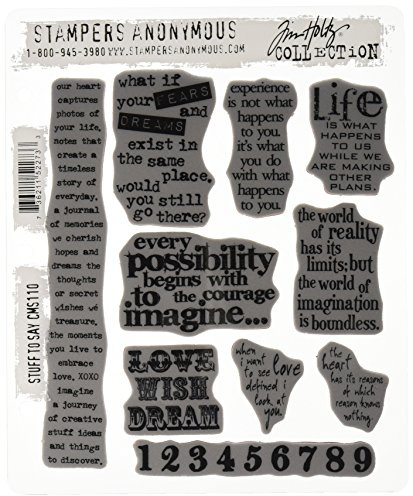 STAMPERS ANONYMOUS
1-800-945-3980 WWW.STAMPERSANONYMOUS.COM
Tim Holtz
COLLECTION
STUFF TO SAY CMS110
our heart
captures
photos of
your life,
notes that
create a
timeless
story of
everyday,
a journal
of memories
we cherish
hopes and
dreams the
thoughts
or secret
wishes we
treasure,
the moments
you live to
embrace
love, XOXO
imagine
a journey
of creative
stuff ideas
and things
to discover.
what if
your FEARS
and
DREAMS
exist in
the same
place.
would
you still
go there?
experience
is not what
happens
to you.
it's what
you do
with what
happens
to you.
LiFe
IS WHAT
HAPPENS
TO US
WHILE WE
ARE MAKING
OTHER
PLANS.
every
possibility
begins with
the courage
to
imagine...
the world
of reality
has its
limits; but
the world of
imagination
is boundless.
LOVE
WISH
DREAM
when
i want
to see love
defined i
look at
you.
the
heart
has its reasons
of which
reason knows
nothing.
123456789